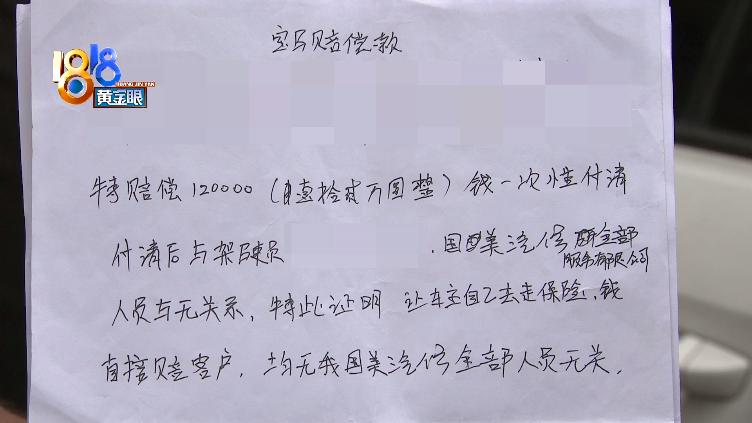 宝马赔偿款
1818
HUANG JIN YAN
黄金眼
特赔偿120000（壹拾贰万圆整）钱一次性付清
付清后与架陕员 ,国美汽修 全部
服务有限公司
人员与无关系,特此证明 让车主自己去走保险,钱
直接赔客户,均无我国美汽修全部人员无关.